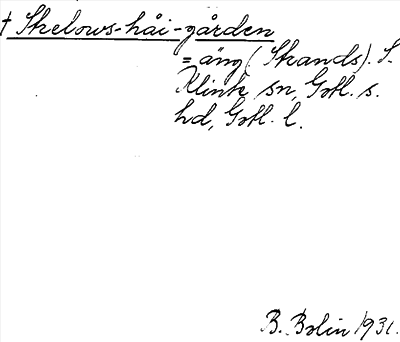 † Skelows-håi-gården
= äng (Skands). S.
Klinte sn, Gotl. s.
hd, Gotl. l.
B. Bolin 1931.